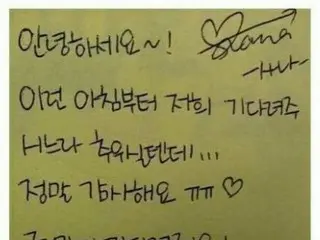 안녕하세요~! ♡Hana
-하나-
이런 아침부터 저희 기다려주
시느라 추위실텐데!...
정말 감사해요 ㅠㅠ ♡